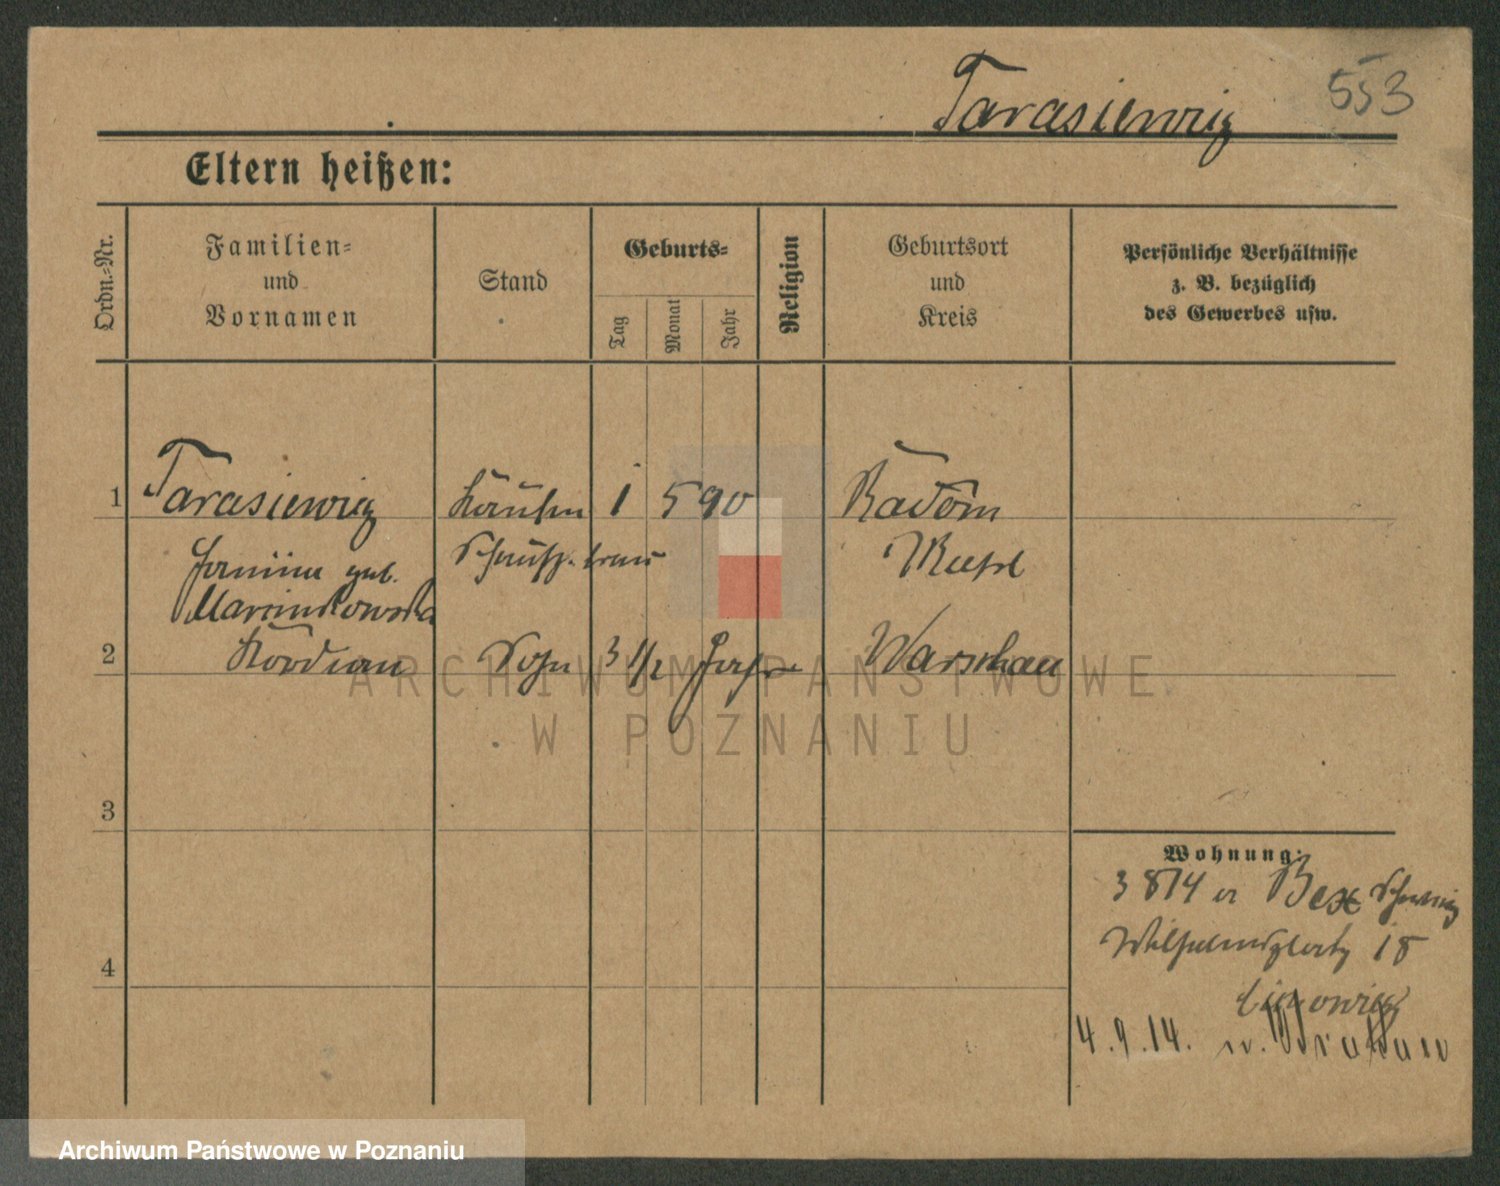 Tarasiewicz 553
Eltern heißen:
Ordn.-Nr.
Familien-
und
Vornamen
Stand
Geburts-
Tag
Monat
Jahr
Religion
Geburtsort
und
Kreis
Persönliche Verhältnisse
z. B. bezüglich
des Gewerbes usw.
1 Tarasiewicz 1 5 90 Radom
geb.
Marcinkowska
2 Kordian Sohn 3 1/2 Jahre Warschau
3
4
Wohnung:
3 8 14
Wilhelmsplatz 18
4.9.14. n.
ARCHIWUM PAŃSTWOWE
W POZNANIU
Archiwum Państwowe w Poznaniu